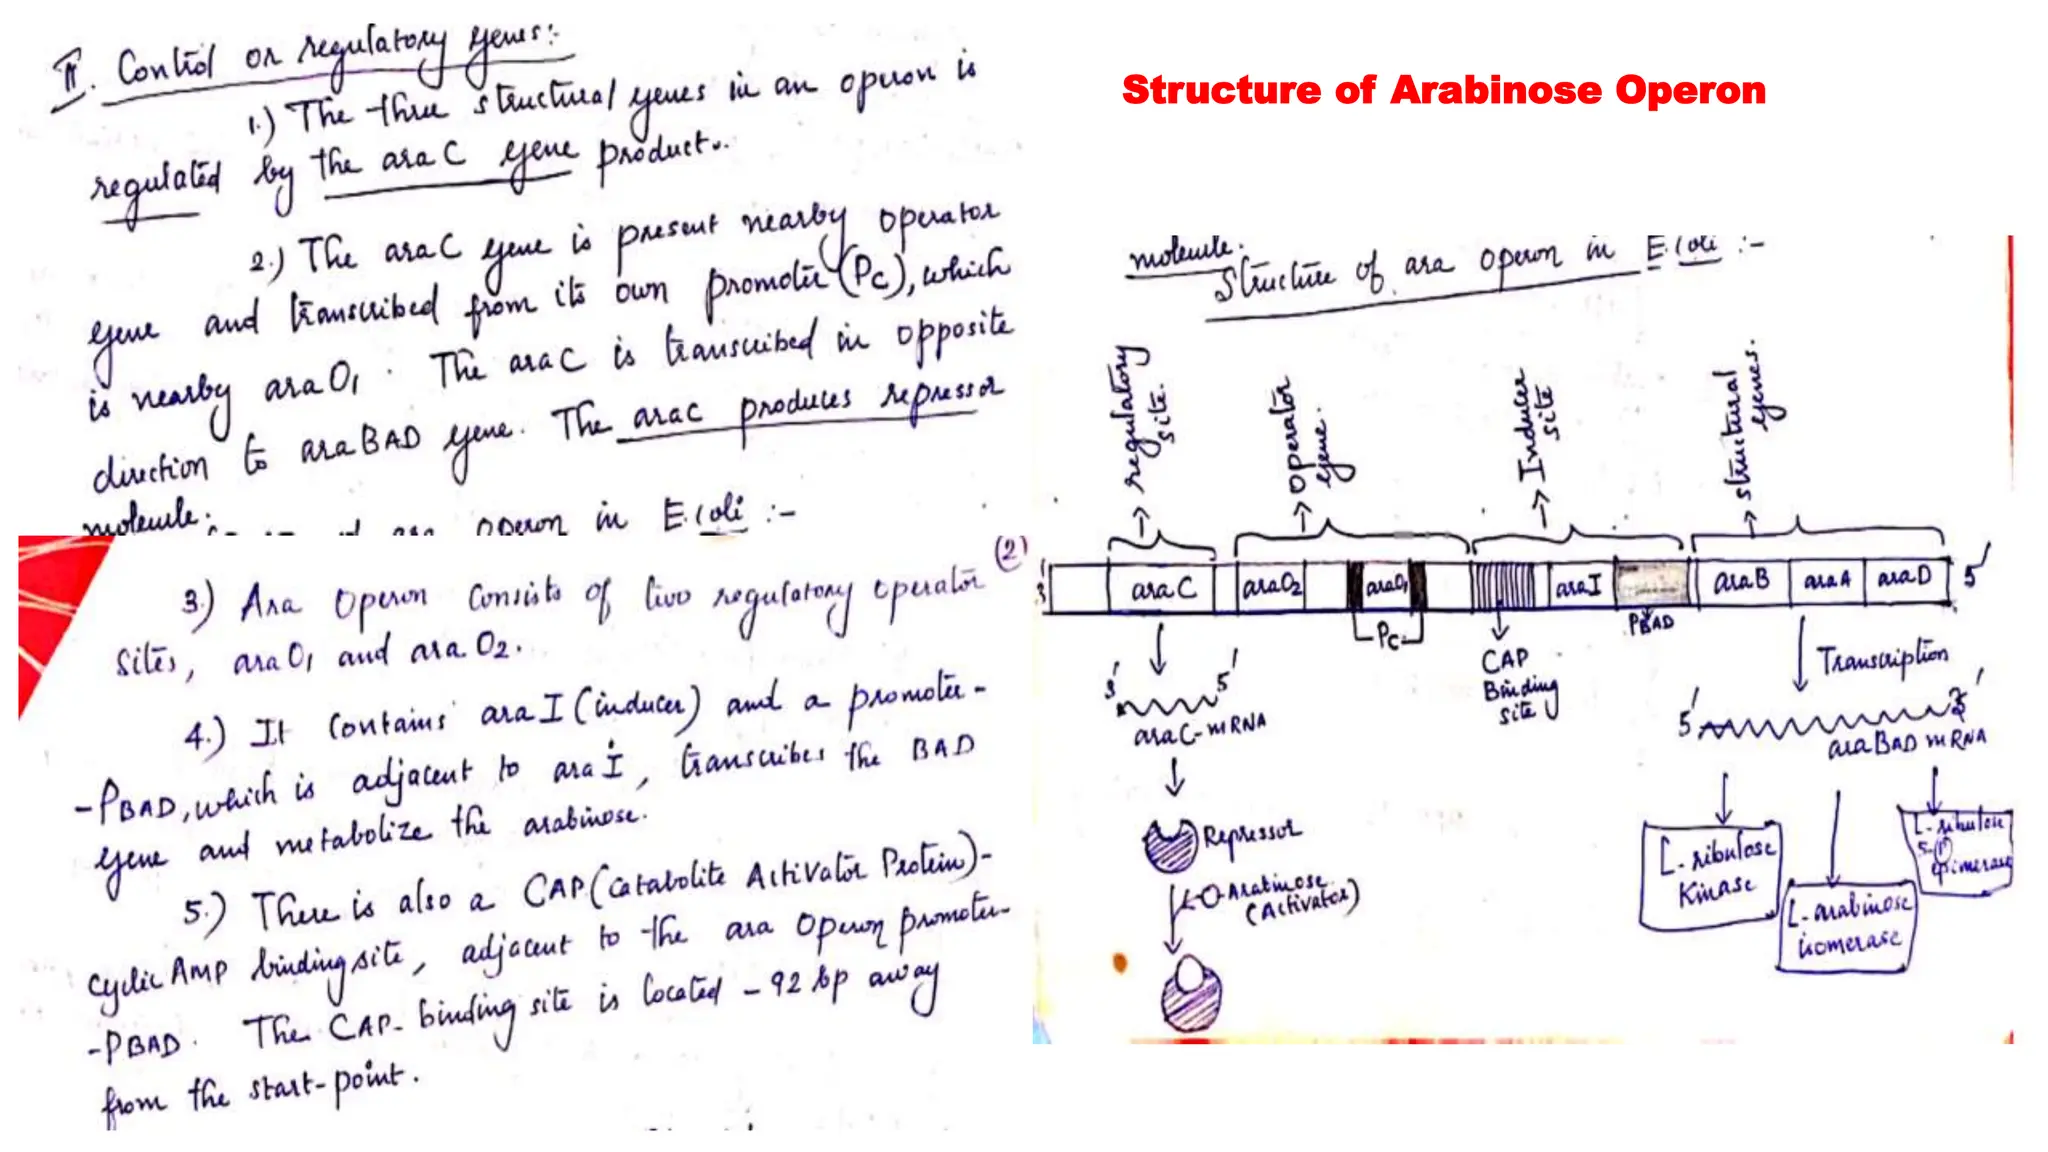 II. Control or regulatory genes:-
1.) The three structural genes in an operon is
regulated by the ara C gene product.
2.) The araC gene is present nearby operator
gene and transcribed from its own promoter (Pc), which
is nearby ara O1. The araC is transcribed in opposite
direction to araBAD gene. The araC produces repressor
molecule.
operon in E.coli :-
(2)
3.) Ara Operon Consists of two regulatory operator
sites, ara O1 and ara O2.
4.) It Contains ara I (inducer) and a promoter-
-PBAD, which is adjacent to ara I, transcribes the BAD
gene and metabolize the arabinose.
5.) There is also a CAP (Catabolite Activator Protein)-
Cyclic AMP binding site, adjacent to the ara Operon promoter-
-PBAD. The CAP-binding site is located -92 bp away
from the start-point.
Structure of Arabinose Operon
molecule.
Structure of ara operon in E.coli :-
regulatory site.
Operator gene.
Inducer site
structural genes.
3' araC araO2 araO1 araI araB araA araD 5'
Pc
CAP Binding site
PBAD
Transcription
3' 5'
araC-mRNA
5' 3'
araBAD mRNA
Repressor
Arabinose
(Activator)
L-ribulose
Kinase
L-arabinose
isomerase
L-ribulose
5-P
epimerase